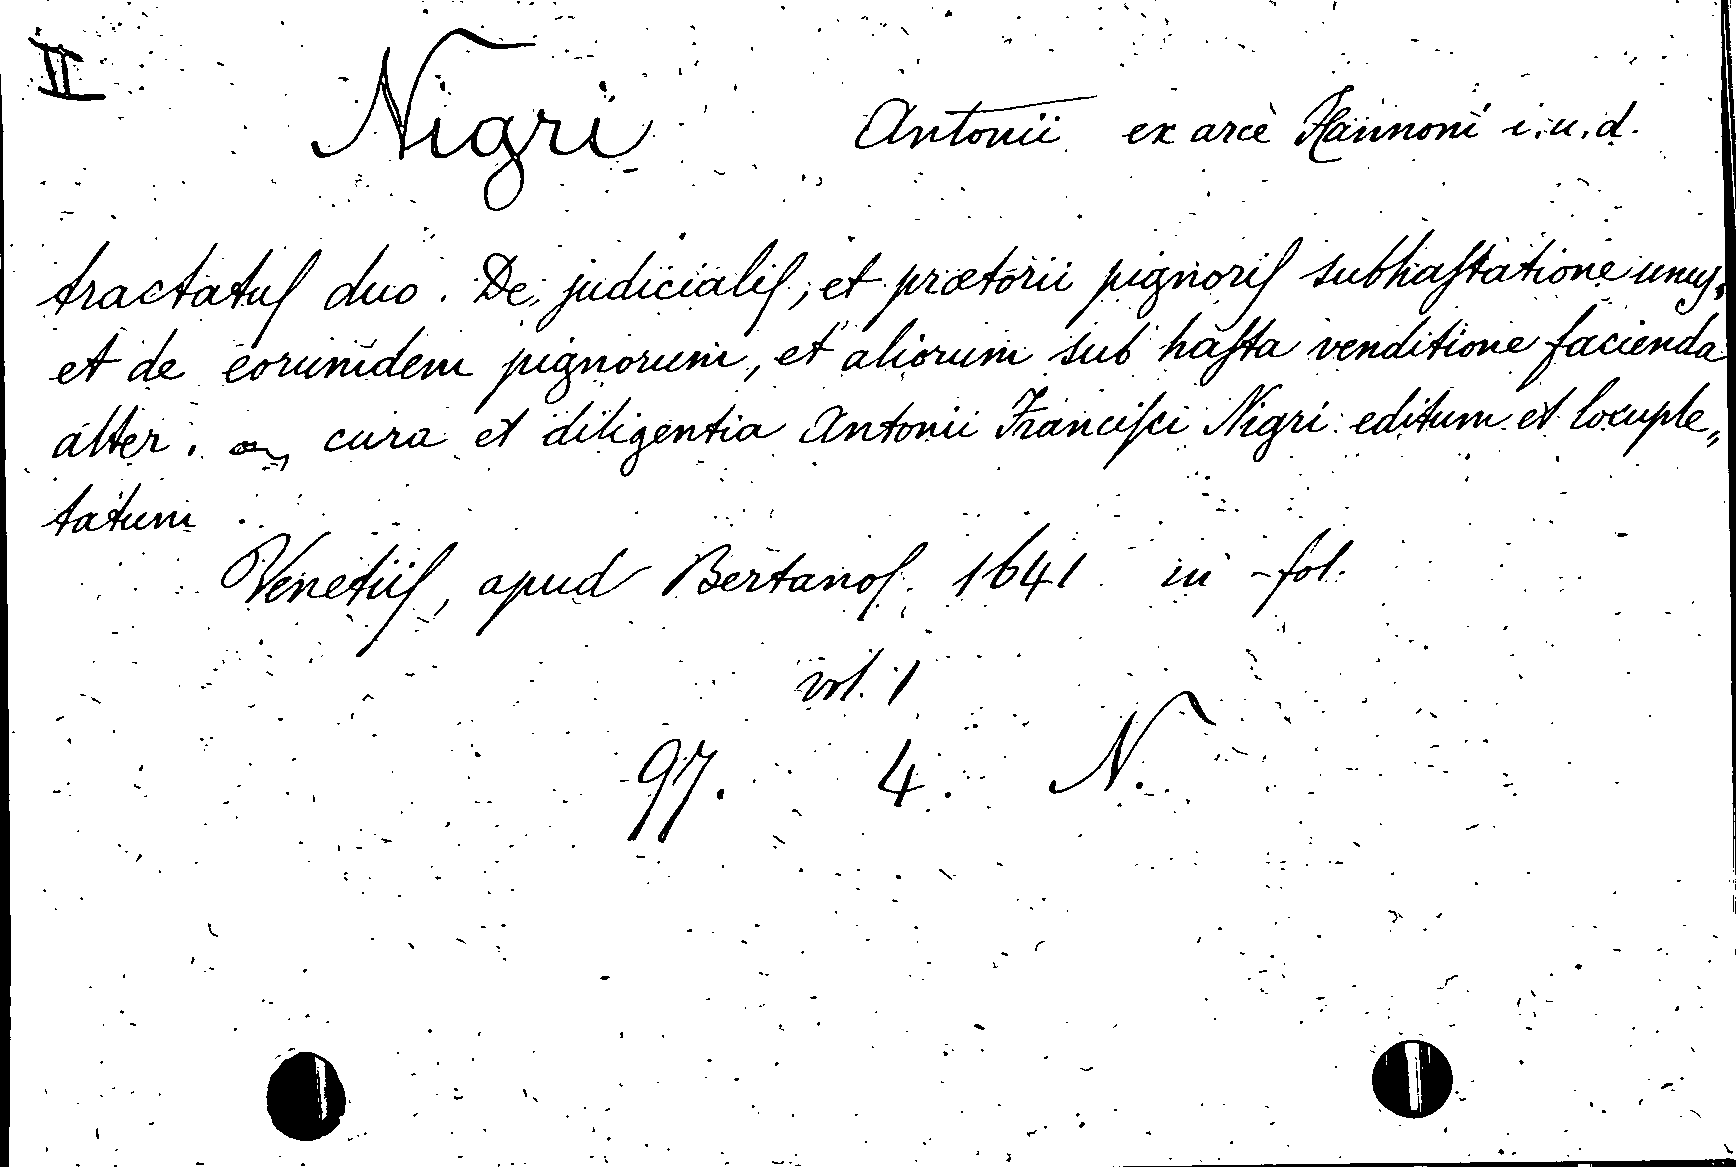 II
Nigri Antonii ex arce Hannoni i.u.d.
tractatuſ duo. De judicialiſ, et prætorii pignoriſ subhaſtatione unuſ,
et de eorumdem pignorum, et aliorum sub haſta venditione facienda
alter. cura et diligentia Antonii Franciſci Nigri editum et locuple„
tatum
Venetiiſ, apud Bertanoſ. 1641 in-fol.
vol. 1
97. 4. N.